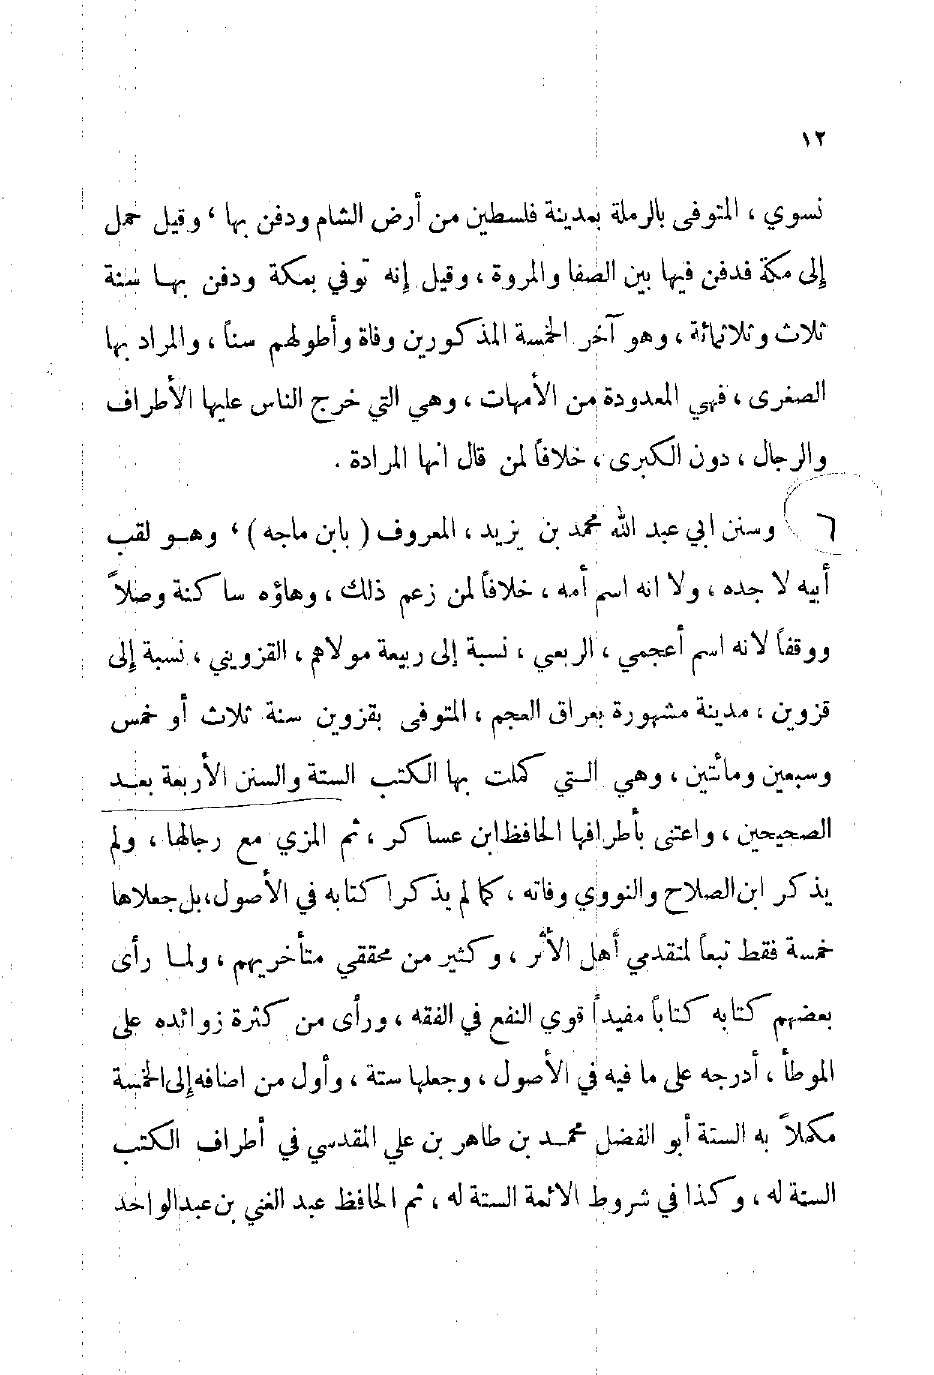 ١٢
نسوي ، المتوفى بالرملة بمدينة فلسطين من أرض الشام ودفن بها ، وقيل حمل
إلى مكة فدفن فيها بين الصفا والمروة ، وقيل إنه توفي بمكة ودفن بهـا سنة
ثلاث وثلاثمائة ، وهو آخر الخمسة المذكورين وفاة وأطولهم سناً ، والمراد بها
الصغرى ، فهي المعدودة من الأمهات ، وهي التي خرج الناس عليها الأطراف
والرجال ، دون الكبرى ، خلافاً لمن قال انها المرادة .
٦ وسنن ابي عبد الله محمد بن يزيد ، المعروف ( بابن ماجه ) ، وهـو لقب
أبيه لا جده ، ولا انه اسم أمه ، خلافاً لمن زعم ذلك ، وهاؤه ساكنة وصلاً
ووقفاً لانه اسم أعجمي ، الربعي ، نسبة إلى ربيعة مولاهم ، القزويني ، نسبة إلى
قزوين ، مدينة مشهورة بعراق العجم ، المتوفى بقزوين سنة ثلاث أو خمس
وسبعين ومائتين ، وهي الـتي كملت بها الكتب الستة والسنن الأربعة بعـد
الصحيحين ، واعتنى بأطرافها الحافظ ابن عساكر ، ثم المزي مع رجالها ، ولم
يذكر ابن الصلاح والنووي وفاته ، كما لم يذكرا كتابه في الأصول ، بل جعلاها
خمسة فقط تبعاً لمتقدمي أهل الأثر ، وكثير من محققي متأخريهم ، ولمـا رأى
بعضهم كتابه كتاباً مفيداً قوي النفع في الفقه ، ورأى من كثرة زوائده على
الموطأ ، أدرجه على ما فيه في الأصول ، وجعلها ستة ، وأول من اضافه إلى الخمسة
مكملاً به الستة أبو الفضل محمـد بن طاهر بن علي المقدسي في أطراف الكتب
الستة له ، وكذا في شروط الائمة الستة له ، ثم الحافظ عبد الغني بن عبد الواحد